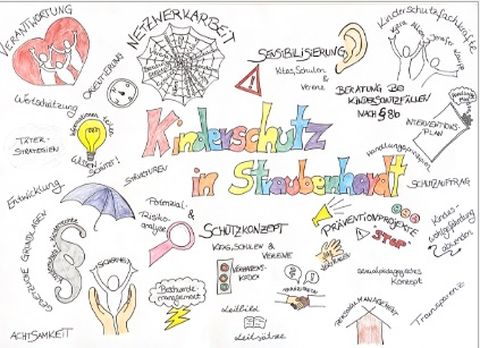 VERANTWORTUNG
NETZWERKARBEIT
ORIENTIERUNG
SENSIBILISIERUNG
Kitas, Schulen &
Vereine
Kinderschutzfachkräfte
BERATUNG BEI
KINDERSCHUTZFÄLLEN
NACH § 8b
INTERVENTIONS-
PLAN
Wertschätzung
TÄTER-
STRATEGIEN
WISSEN
SCHÜTZT!
Kinderschutz
in Straubenhardt
Handlungssicherheit
SCHUTZAUFTRAG
STRUKTUREN
Entwicklung
GESETZLICHE GRUNDLAGEN
Potenzial-
&
Risiko-
analyse
SCHUTZKONZEPT
KITAS, SCHULEN &
VEREINE
PRÄVENTIONPROJEKTE
"STOP"
Kindes-
wohlgefährdung
abwenden
SICHERHEIT
VERHALTENS-
KODEX
Beschwerde
management
sexualpädagogisches
Konzept
Leitbild
Leitsätze
PERSONALMANAGEMENT
Transparenz
ACHTSAMKEIT